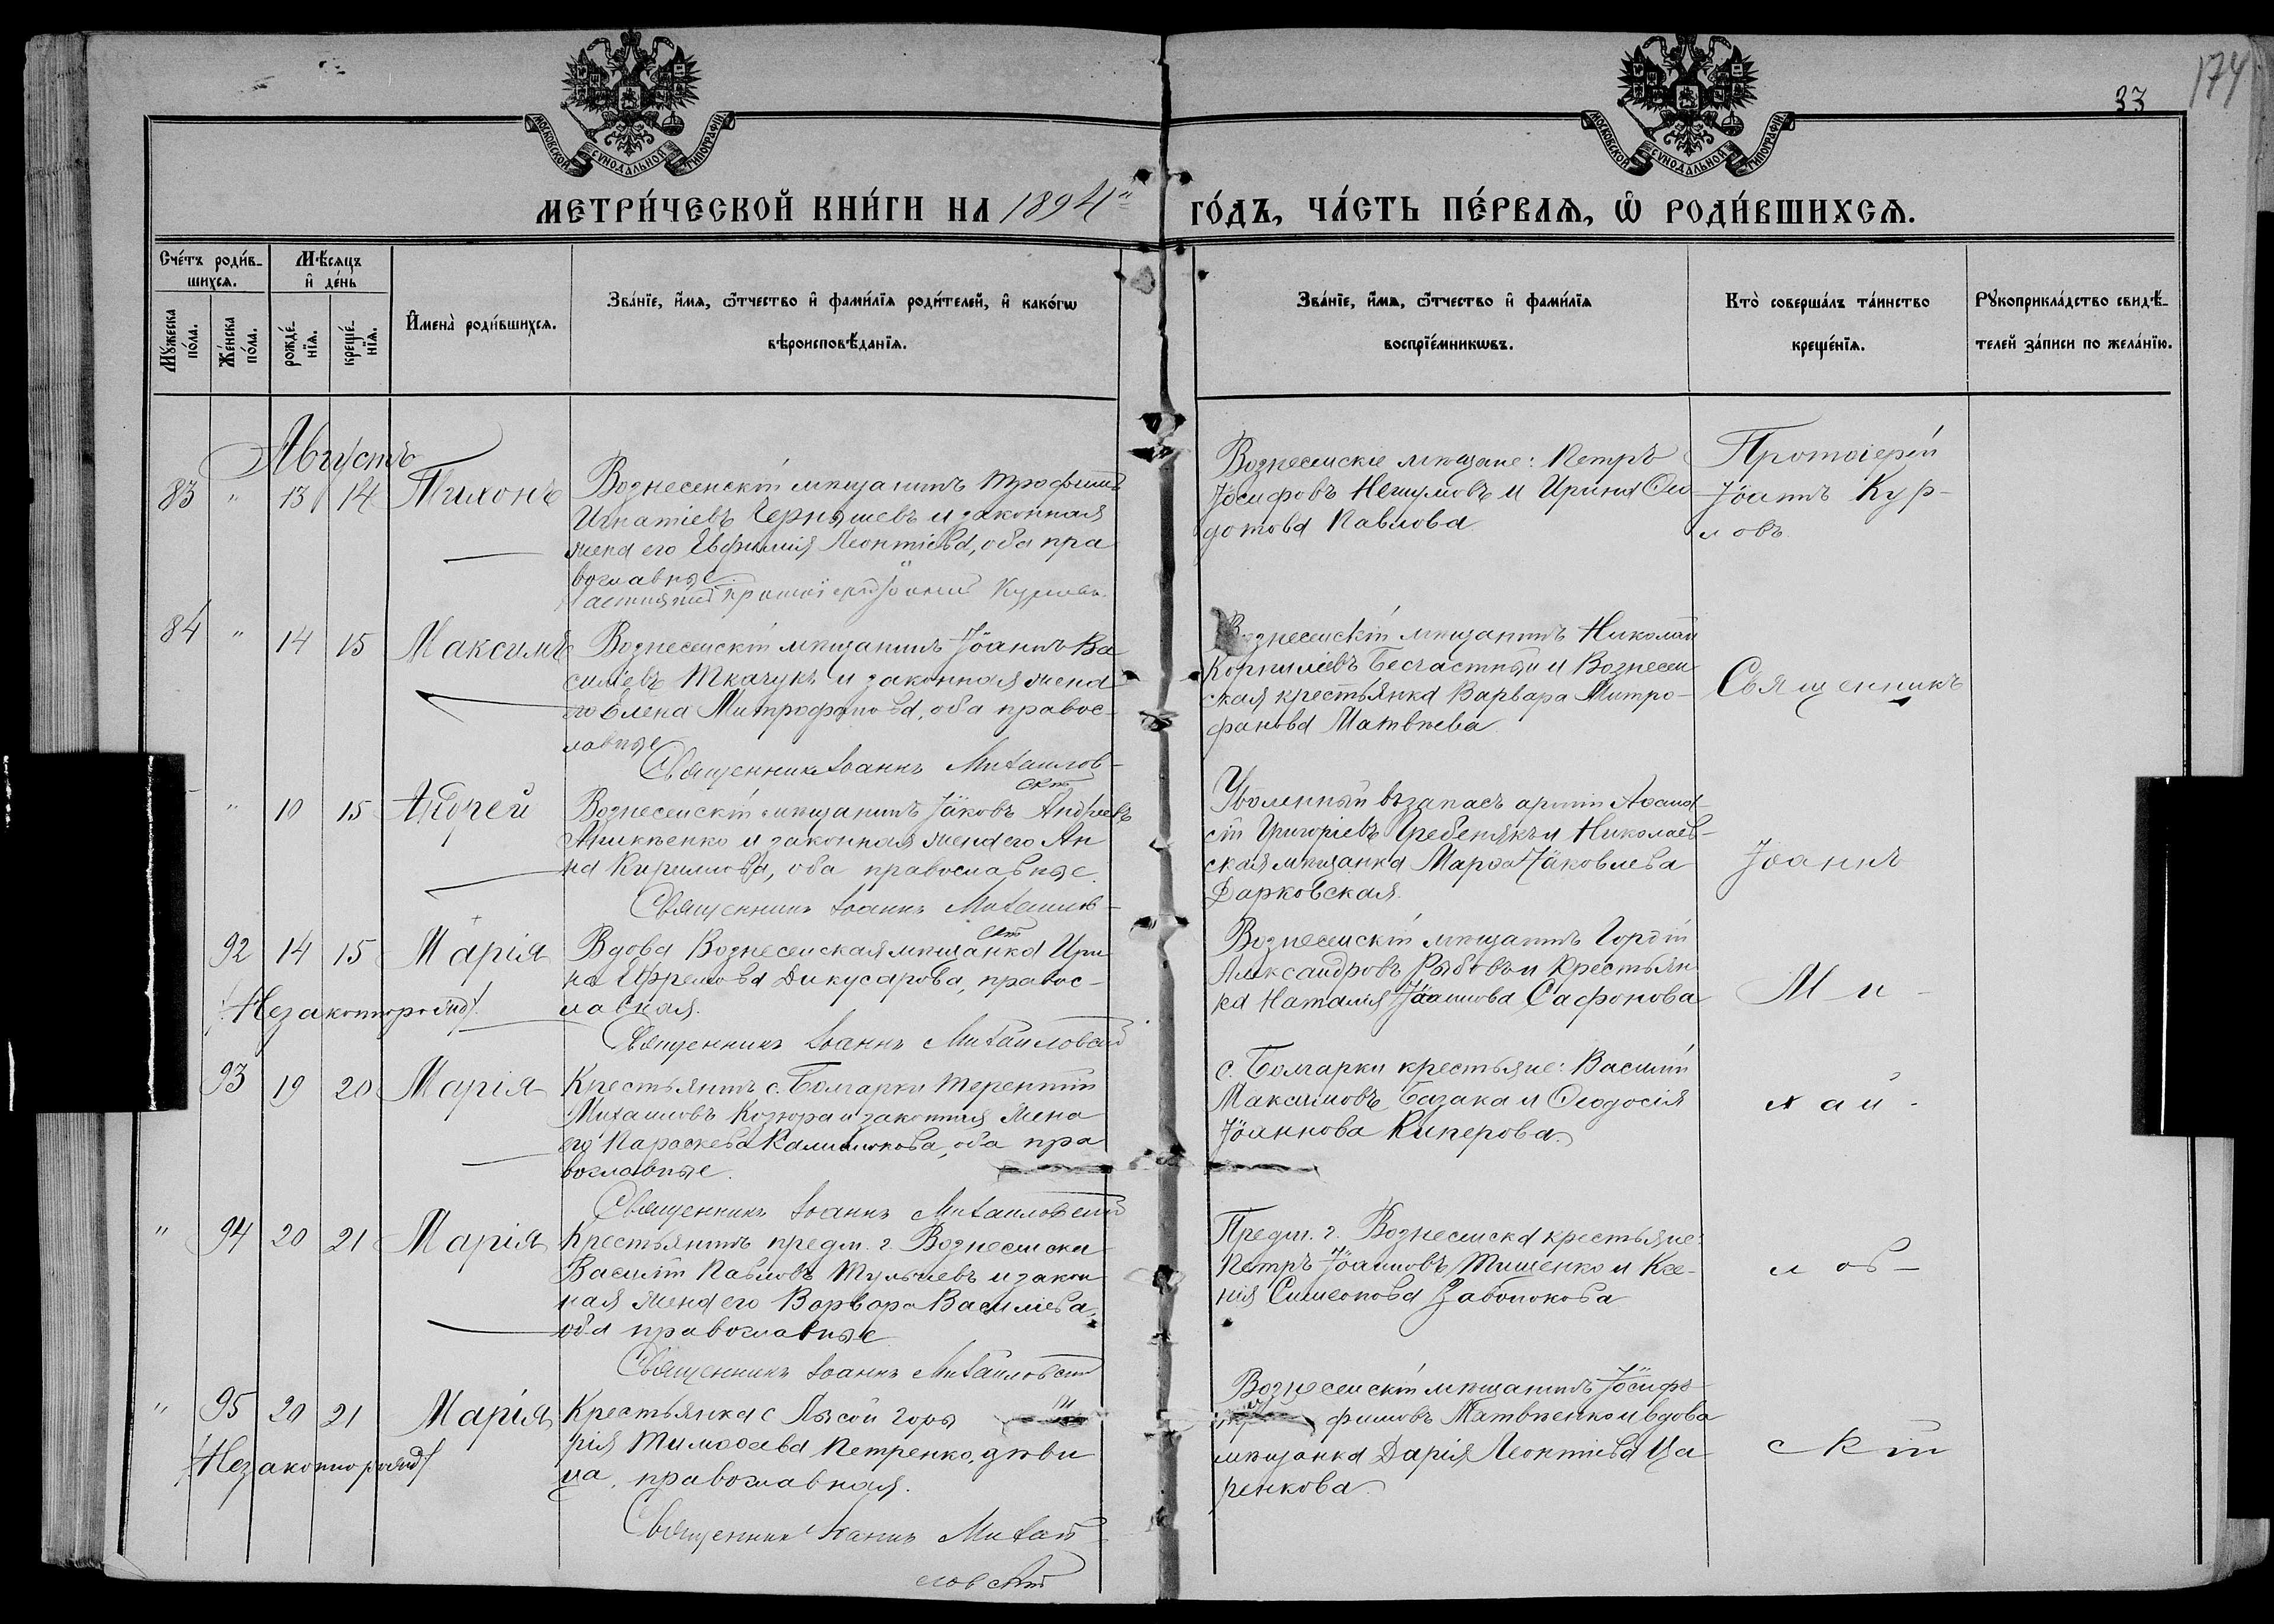 174
33
МОСКОВСКОЙ СѴНОДАЛЬНОЙ ТИПОГРАФІИ
МОСКОВСКОЙ СѴНОДАЛЬНОЙ ТИПОГРАФІИ
МЕТРИ́ЧЕСКОЙ КНИ́ГИ НА 1894й ГО́ДЪ, ЧА́СТЬ ПЕ́РВАѦ, Ѽ РОДИ́ВШИХСѦ.
Сче́тъ роди́в-
шихсѧ.
Мꙋ́жеска по́ла.
Же́нска по́ла.
Мѣ́сѧцъ
и҆ де́нь
рожде́-
нїѧ.
креще́-
нїѧ.
И҆мена̀ роди́вшихсѧ.
Зва́нїе, и҆́мѧ, ѻ҆́тчество и҆ фами́лїѧ роди́телей, и҆ како́гѡ
вѣроисповѣ́данїѧ.
Зва́нїе, и҆́мѧ, ѻ҆́тчество и҆ фами́лїѧ
воспрїе́мникѡвъ.
Кто̀ соверша́лъ та́инство
креще́нїѧ.
Рꙋкоприкла́дство свидѣ́-
телей за́писи по жела́нїю.
Августъ
83 " 13 14 Тихонъ
Вознесенскій мѣщанинъ Трофимъ
Игнатіевъ Чернышевъ и законная
жена его Евфимія Леонтіева, оба пра
вославные
протоіерей Іоаннъ Курловъ
Вознесенскіе мѣщане: Петръ
Іосифовъ и Ирина Ѳео
дотова Павлова
Протоіерей
Іоаннъ Кур-
ловъ
84 " 14 15 Максимъ
Вознесенскій мѣщанинъ Іоаннъ Ва
силіевъ Ткачукъ и законная жена
его Елена Митрофанова, оба правос-
лавные
Священникъ Іоаннъ Михаилов-
скій
Вознесенскій мѣщанинъ Николай
Корниліевъ Бесчастный и Вознесен
ская крестьянка Варвара Митро-
фанова Матвѣева
Священникъ
" 10 15 Андрей
Вознесенскій мѣщанинъ Іаковъ Андреевъ
Аникѣенко и законная жена его Ан
на Кириллова, оба православные.
Священникъ Іоаннъ Михаилов-
скій
Уволенный въ запасъ арміи Аѳана-
сій Григоріевъ Гребенякъ и Николаев-
ская мѣщанка Марѳа Іаковлева
Дарковская
Іоаннъ
92 14 15 Марія
/Незаконнорожд/
Вдова Вознесенская мѣщанка Ири
на Ефремова Дикусарова, правос-
лавная.
Священникъ Іоаннъ Михаиловскій
Вознесенскій мѣщанинъ Гордій
Александровъ Рябовъ и крестьян
ка Наталія Іоаннова Сафонова
Ми-
93 19 20 Марія
Крестьянинъ с. Болгарки Терентій
Михаиловъ Козюра и законная жена
его Параскева Калиникова, оба пра
вославные.
Священникъ Іоаннъ Михаиловскій
с. Болгарки крестьяне: Василій
Максимовъ Базака и Ѳеодосія
Іоаннова Киперова.
хаи-
" 94 20 21 Марія
Крестьянинъ предм. г. Вознесенска
Василій Павловъ Тульчевъ и закон
ная жена его Варвара Василіева,
оба православные
Священникъ Іоаннъ Михаиловскій
Предм. г. Вознесенска крестьяне:
Петръ Іоанновъ Тищенко и Ксе-
нія Симеонова
лов-
" 95 20 21 Марія
/Незаконнорожд/
Крестьянка с Лысой Горы
рія Тимоѳеева Петренко, дѣви
ца, православная.
Священникъ Іоаннъ Михаи-
ловскій
Вознесенскій мѣщанинъ Іосифъ
фимовъ Матвѣенко и вдова
мѣщанка Дарія Леонтіева Ца
ренкова.
скій